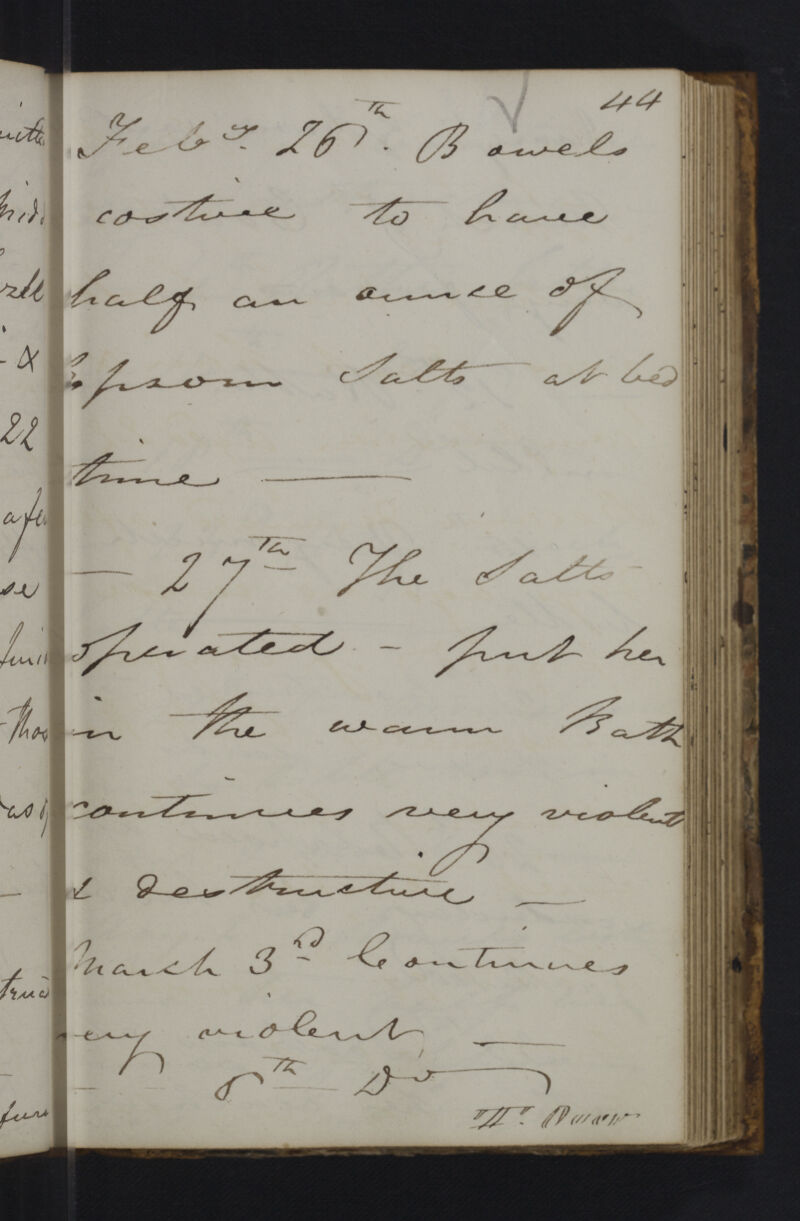 44
Feby. 26th. Bowels
costive to have
half an ounce of
Epsom Salts at bed
time —
— 27th The Salts
operated - put her
in the warm Bath
continues very violent
& destructive —
March 3rd Continues
very violent —
— 8th Do